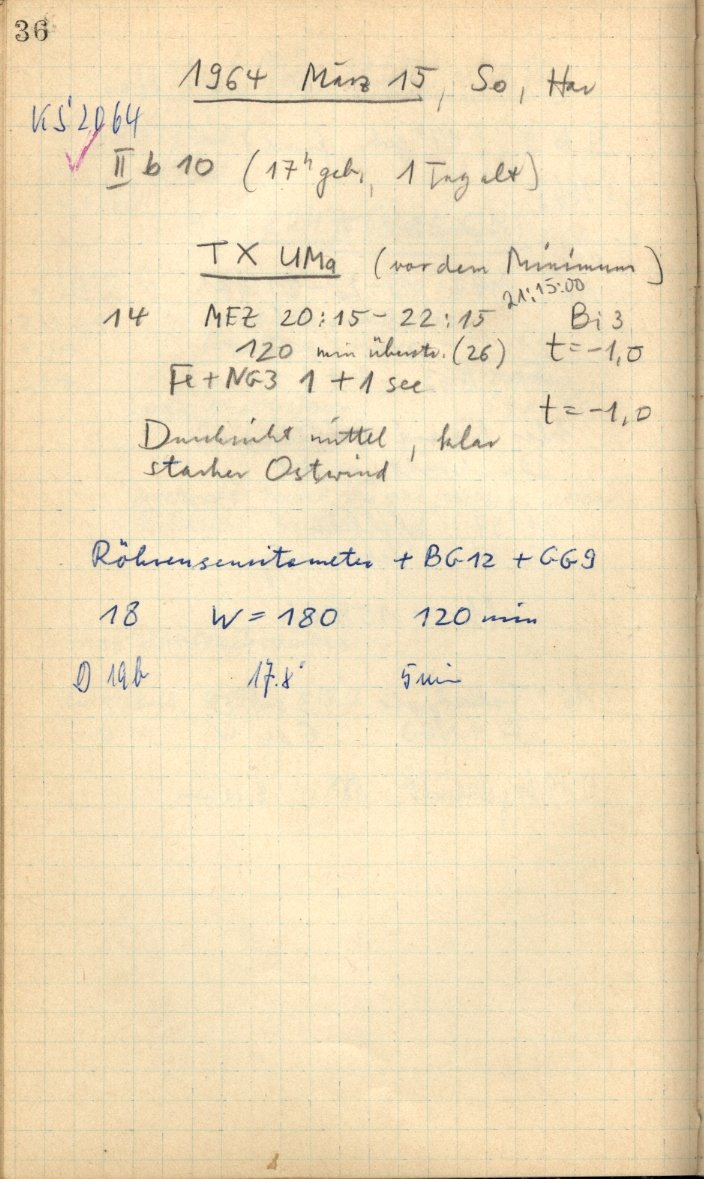 36
1964 März 15, So, Har
KS 2064
II b 10 (17h geb., 1 Tag alt)
TX UMa (vor dem Minimum)
21:15:00
14 MEZ 20:15 - 22:15 Bi 3
120 min überstr. (26) t = -1,0
Fe + NG3 1 + 1 sec
t = -1,0
Durchsicht mittel, klar
starker Ostwind
Röhrensensitometer + BG12 + GG9
18 W = 180 120 min
D 19b 17.8° 5 min